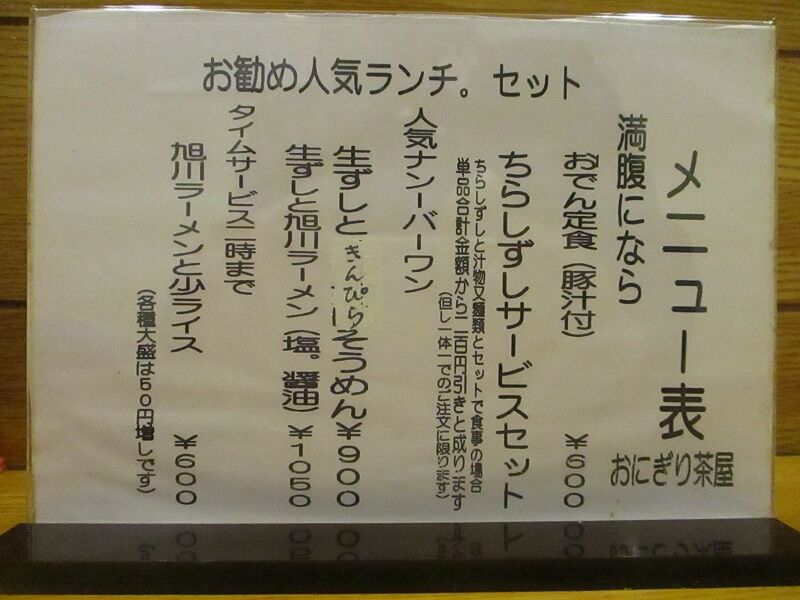 お勧め人気ランチ。セット
メニュー表
おにぎり茶屋
満腹になら
おでん定食(豚汁付) ¥600
ちらしずしサービスセット
ちらしずしと汁物又麺類とセットで食事の場合
単品合計金額から二百円引きと成ります
(但し一体一でのご注文に限ります)
人気ナンーバーワン
生ずしときんぴらそうめん ¥900
生ずしと旭川ラーメン(塩。醤油) ¥1050
タイムサービス二時まで
旭川ラーメンと少ライス ¥600
(各種大盛は50円増しです)